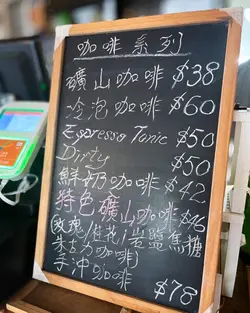 咖啡系列
礦山咖啡 $38
冷泡咖啡 $60
Espresso Tonic $50
Dirty $50
鮮奶咖啡 $42
特色礦山咖啡 $46
(玫瑰/桂花/岩鹽焦糖
朱古力咖啡)
手沖咖啡 $78